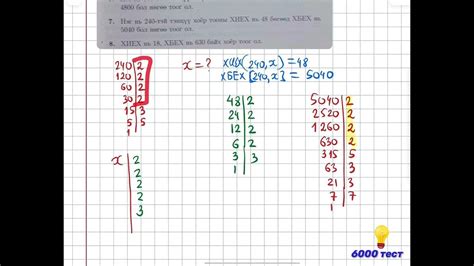 4800 бол нөгөө тоог ол.
7. Нэг нь 240-тэй тэнцүү хоёр тооны ХИЕХ нь 48 бөгөөд ХБЕХ нь
5040 бол нөгөө тоог ол.
8. ХИЕХ нь 18, ХБЕХ нь 630 байх хоёр тоог ол.
x = ? ХИЕХ (240, x) = 48
ХБЕХ [240, x] = 5040
240 2
120 2
60 2
30 2
15 3
5 5
1
48 2
24 2
12 2
6 2
3 3
1
5040 2
2520 2
1260 2
630 2
315 5
63 3
21 3
7 7
1
x 2
2
2
2
3
6000 тест